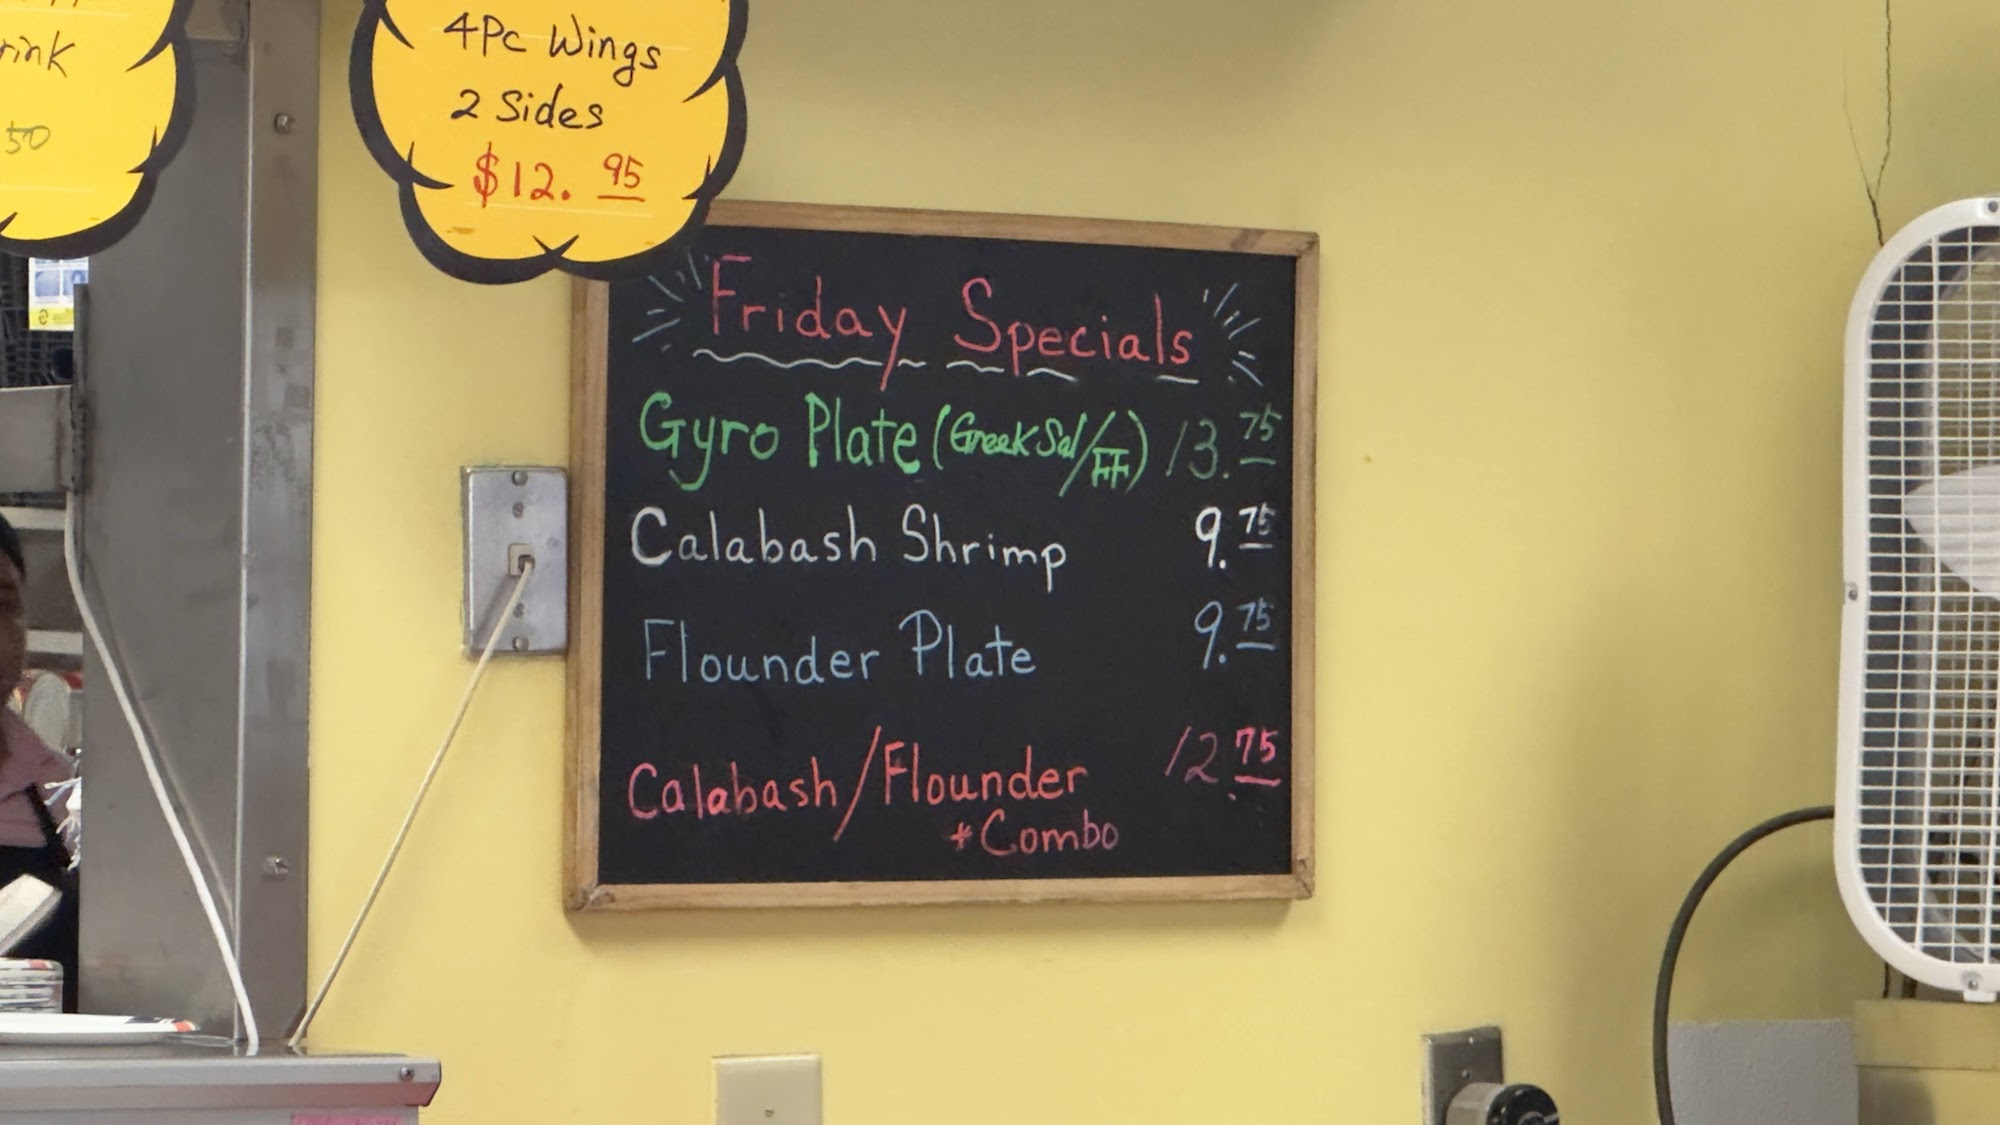 50
4Pc Wings
2 Sides
$12.95
Friday Specials
Gyro Plate (Greek Sal/FF) 13.75
Calabash Shrimp 9.75
Flounder Plate 9.75
Calabash/Flounder 12.75
*Combo